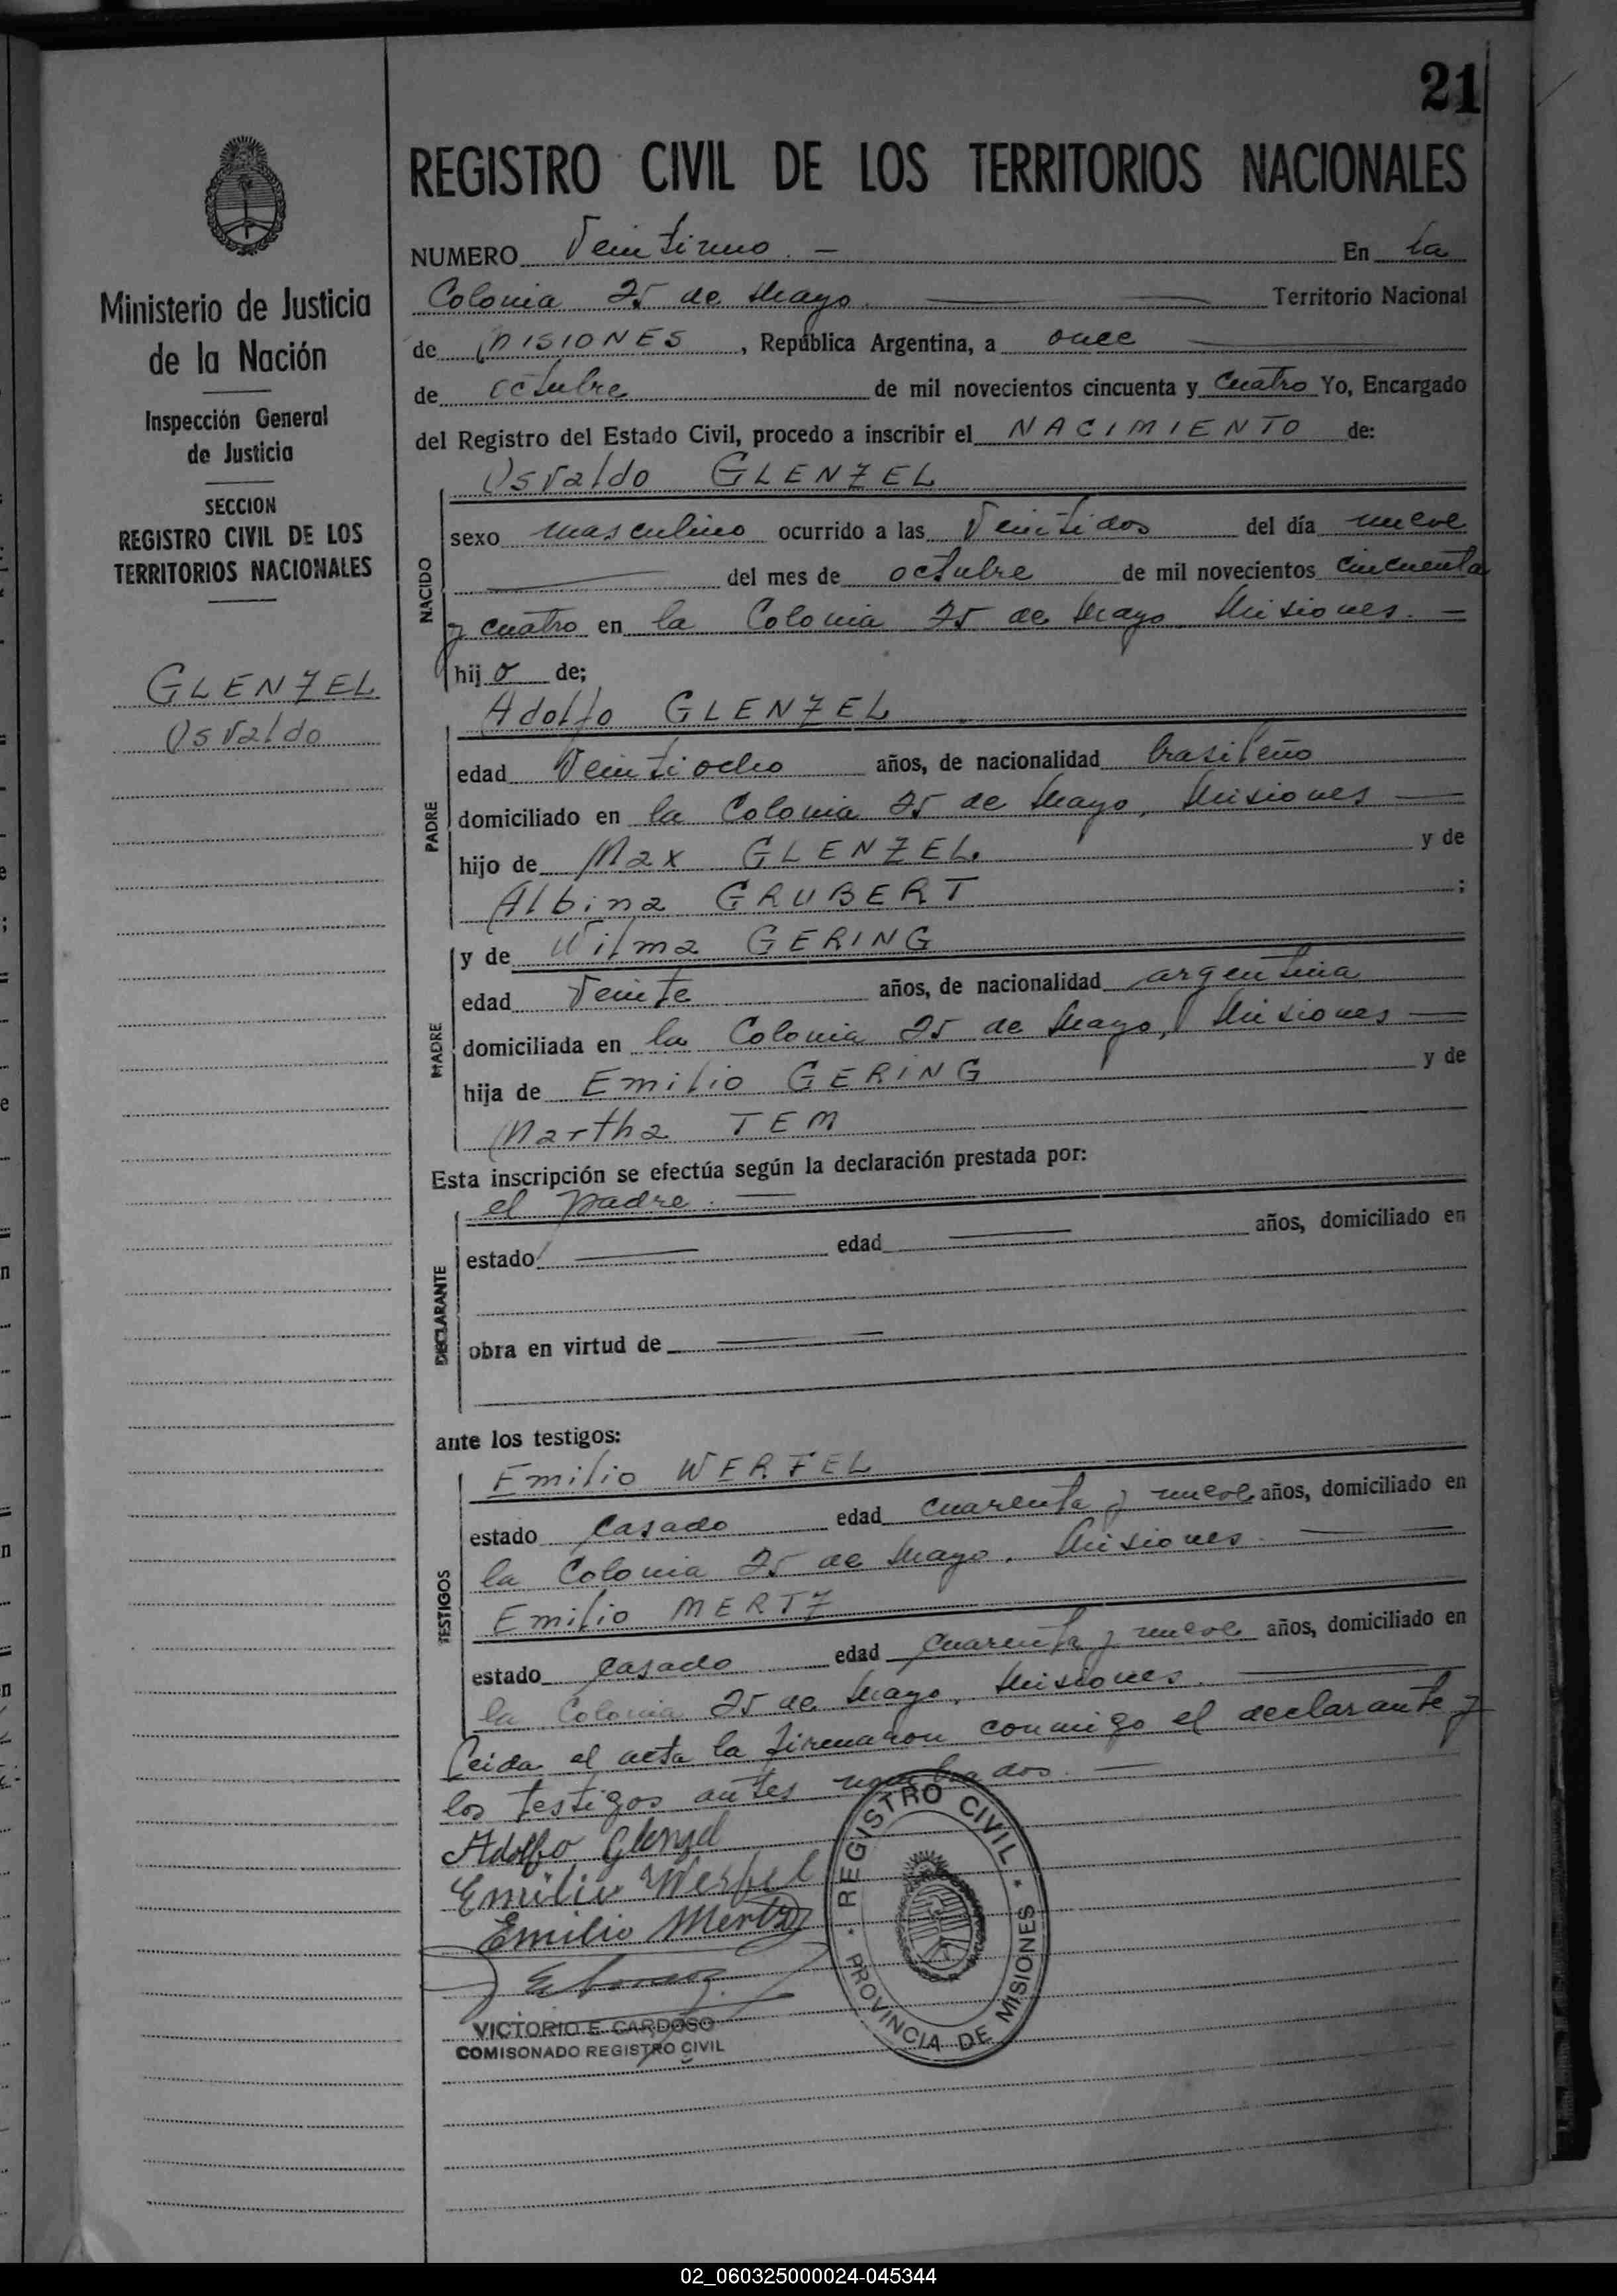 21
REGISTRO CIVIL DE LOS TERRITORIOS NACIONALES
Ministerio de Justicia
de la Nación
Inspección General
de Justicia
SECCION
REGISTRO CIVIL DE LOS
TERRITORIOS NACIONALES
GLENZEL
Osvaldo
NUMERO Veintiuno. — En la
Colonia 25 de Mayo. Territorio Nacional
de MISIONES, República Argentina, a once
de octubre de mil novecientos cincuenta y cuatro Yo, Encargado
del Registro del Estado Civil, procedo a inscribir el NACIMIENTO de:
NACIDO
Osvaldo GLENZEL
sexo masculino ocurrido a las Veintidos del día nueve
del mes de octubre de mil novecientos cincuenta
y cuatro en la Colonia 25 de Mayo. Misiones. —
hijo de;
PADRE
Adolfo GLENZEL
edad Veintiocho años, de nacionalidad brasileño
domiciliado en la Colonia 25 de Mayo, Misiones —
hijo de Max GLENZEL. y de
Albina GRUBERT ;
MADRE
y de Wilma GERING
edad Veinte años, de nacionalidad argentina
domiciliada en la Colonia 25 de Mayo, Misiones —
hija de Emilio GERING y de
Martha TEM
Esta inscripción se efectúa según la declaración prestada por:
DECLARANTE
el padre. —
estado — edad — años, domiciliado en
obra en virtud de —
ante los testigos:
TESTIGOS
Emilio WERFEL
estado casado edad cuarenta y nueve años, domiciliado en
la Colonia 25 de Mayo. Misiones. —
Emilio MERTZ
estado casado edad cuarenta y nueve años, domiciliado en
la Colonia 25 de Mayo. Misiones. —
Leida el acta la firmaron conmigo el declarante y
los testigos antes nombrados. —
Adolfo Glenzel
Emilio Werfel
Emilio Mertz
VICTORIO E. CARDOSO
COMISONADO REGISTRO CIVIL
REGISTRO CIVIL
PROVINCIA DE MISIONES
02_060325000024-045344